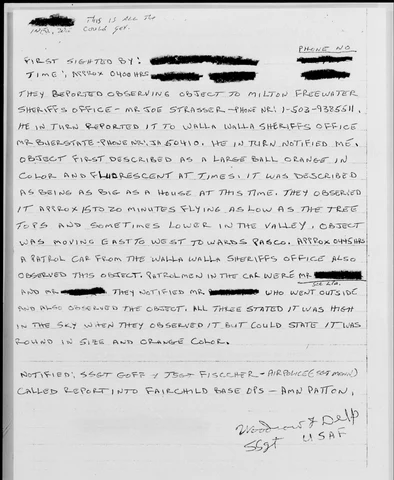 This is all the
INFO, I could get.
PHONE NO
FIRST SIGHTED BY:
TIME; APPROX 0400 HRS
THEY REPORTED OBSERVING OBJECT TO MILTON FREEWATER
SHERIFFS OFFICE - MR JOE STRASSER - PHONE NR! 1-503-9385511.
HE IN TURN REPORTED IT TO WALLA WALLA SHERIFFS OFFICE
MR BUERSTATE - PHONE NR! JA50410. HE IN TURN NOTIFIED ME.
OBJECT FIRST DESCRIBED AS A LARGE BALL ORANGE IN
COLOR AND FLUORESCENT AT TIMES. IT WAS DESCRIBED
AS BEING AS BIG AS A HOUSE AT THIS TIME. THEY OBSERVED
IT APPROX 15 TO 20 MINUTES FLYING AS LOW AS THE TREE
TOPS AND SOMETIMES LOWER IN THE VALLEY. OBJECT
WAS MOVING EAST TO WEST TOWARDS PASCO. APPROX 0445 HRS
A PATROL CAR FROM THE WALLA WALLA SHERIFFS OFFICE ALSO
OBSERVED THIS OBJECT. PATROLMEN IN THE CAR WERE MR
AND MR THEY NOTIFIED MR WHO WENT OUTSIDE
AND ALSO OBSERVED THE OBJECT. ALL THREE STATED IT WAS HIGH
IN THE SKY WHEN THEY OBSERVED IT BUT COULD STATE IT WAS
ROUND IN SIZE AND ORANGE COLOR.
NOTIFIED: SSGT GOFF & TSGT FISCCHER - AIR POLICE
CALLED REPORT INTO FAIRCHILD BASE OPS - AMN PATTON,
Woodrow J Delp
SSgt USAF